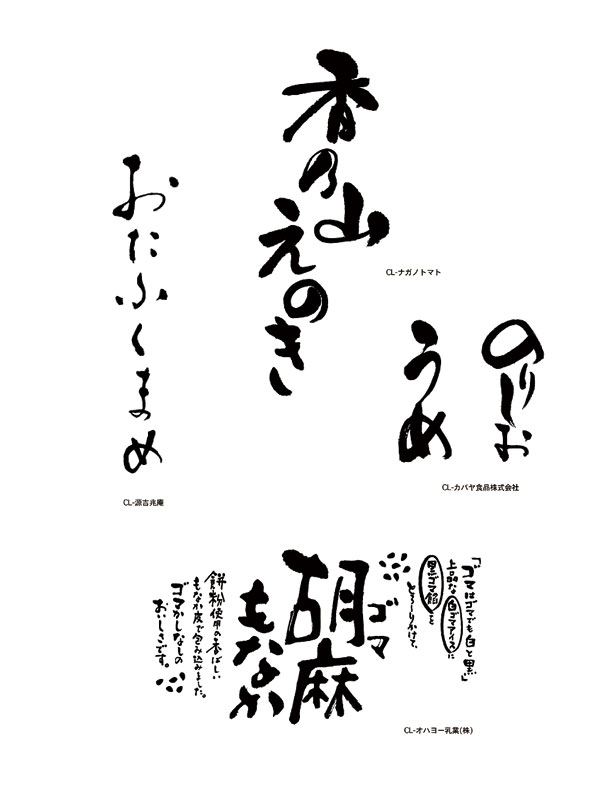 香の山
えのき
CL-ナガノトマト
おたふくまめ
CL-源吉兆庵
のりしお
うめ
CL-カバヤ食品株式会社
「ゴマはゴマでも白と黒」
上品な白ゴマアイスに
黒ゴマ餡を
とろ〜りかけて、
ゴマ
胡麻
もなか
餅粉使用の香ばしい
もなか皮で包み込みました。
ゴマかしなしの
おいしさです。
CL-オハヨー乳業(株)